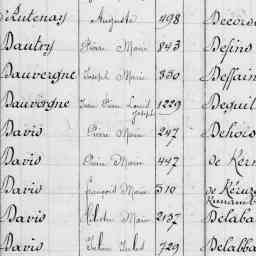 Auguste 498
Dautry Pierre Marie 843 Defins
Dauvergne Joseph Marie 330 Deffain
Dauvergne Jean Pierre Louis 1229 Deguil
Joseph
Davis Pierre Marie 247 Dehors
Davis Pierre Marie 447 de Ker
Davis François Marie 510 de Kéruz
Davis Marie 2137 Delaba
Davis Jules 729 Delabba